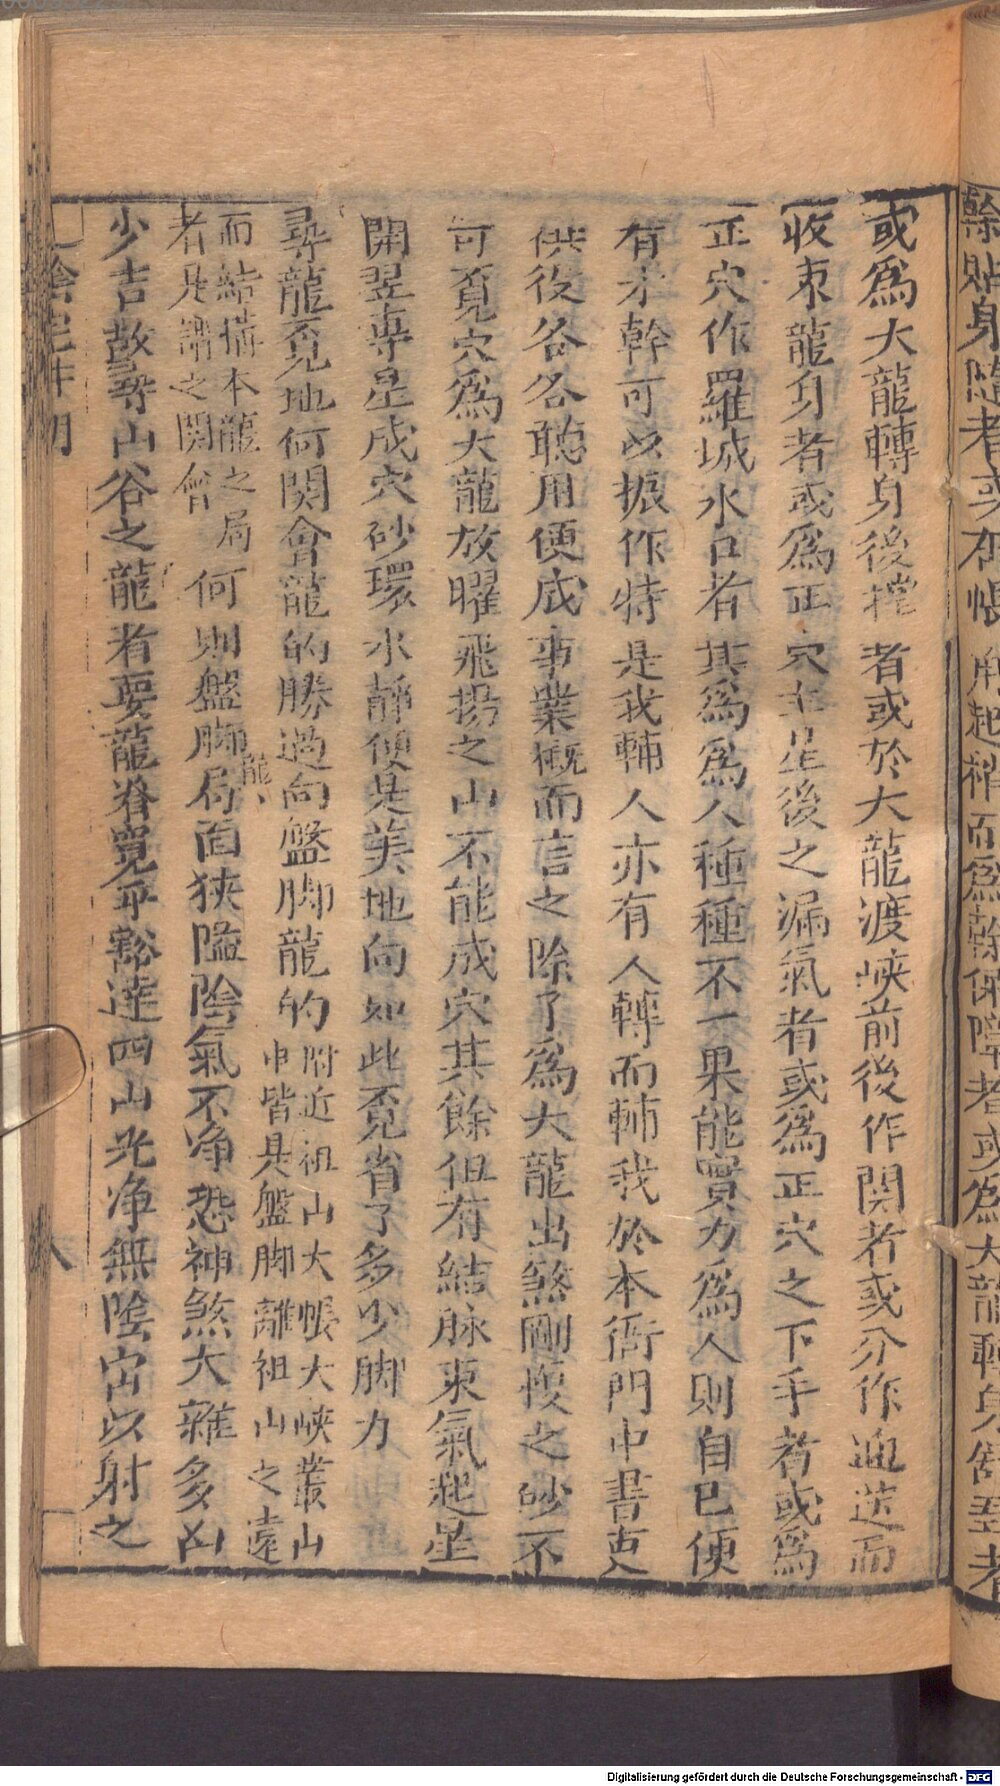 幹貼身隨者或在帳角起稍而爲幹保障者或爲大龍轉身智
或爲大龍轉身後撑者或於大龍渡峽前後作関者或分作迎送而
收束龍身者或爲正穴主星後之漏氣者或爲正穴之下手者或爲
正穴作羅城水口者其爲爲人種種不一果能實力爲人則自己便
有才幹可以振作特是我輔人亦有人轉而輔我於本衙門中書吏
供役各各聽用便成事業概而言之除了爲大龍出煞剛愎之砂不
可覔穴爲大龍放曜飛揚之山不能成穴其餘但有結脉束氣起星
開翌專星成穴砂環水靜便是美地向如此覔省了多少脚力
尋龍覔地何関會龍的勝過向盤脚龍的附近祖山大帳大峽叢山
中皆具盤脚離祖山之遠
而結搆本龍之局
者是謂之関會
何則盤脚龍局面狹隘陰氣不净恐神煞大雜多凶
少吉故尋山谷之龍者要龍脊寬平豁達四山光净無陰宕以射之
六
Digitalisierung gefördert durch die Deutsche Forschungsgemeinschaft - DFG